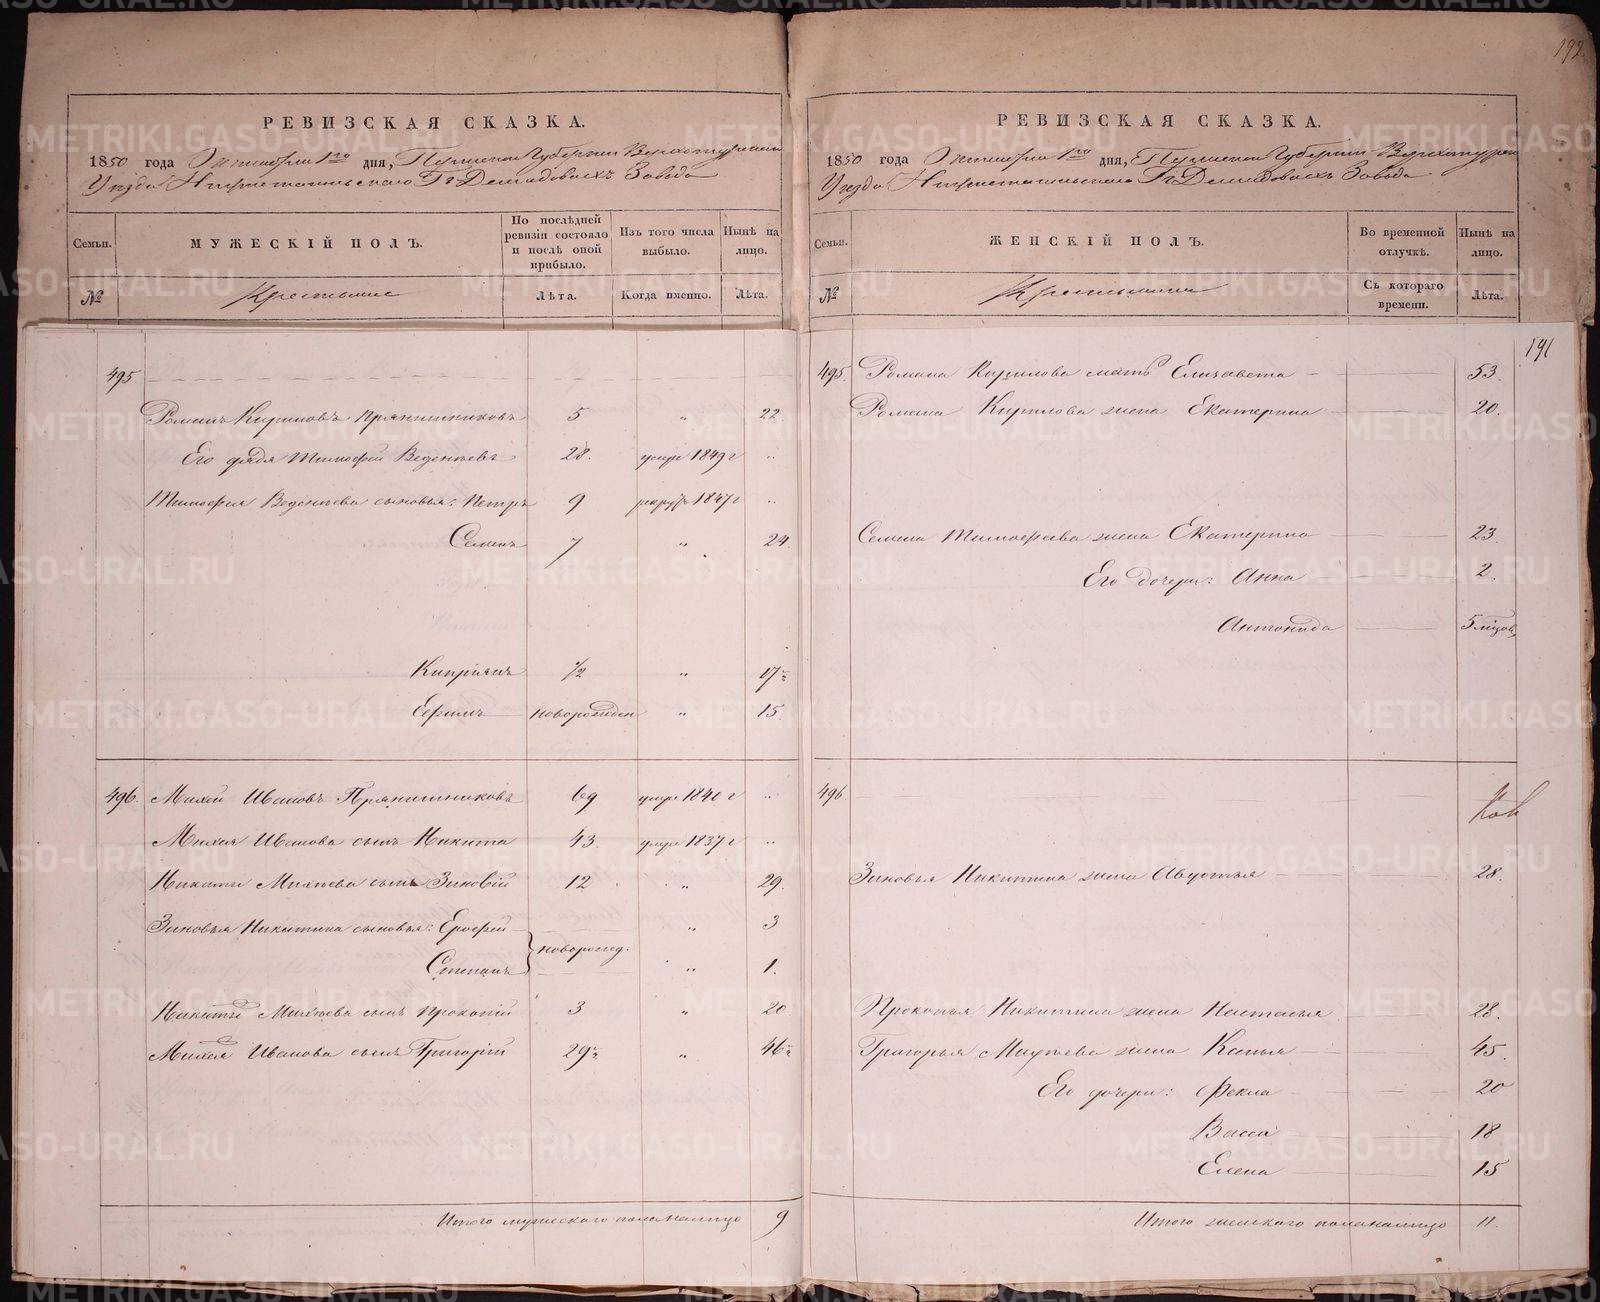 192
РЕВИЗСКАЯ СКАЗКА.
1850 года Октября 1го дня, Пермской Губернии Верхотурскаго
Уезда Нижнетагильскаго Гг. Демидовыхъ Завода
Семьи.
МУЖЕСКІЙ ПОЛЪ.
По послѣдней ревизіи состояло и послѣ оной прибыло.
Изъ того числа выбыло.
Нынѣ на лицо.
№
Крестьяне
Лѣта.
Когда именно.
Лѣта.
495
Романъ Кириловъ Прянишниковъ 5 " 22
Его дядя Тимофей Веденѣевъ 28. умре 1849 г "
Тимофея Веденѣева сыновья: Петръ 9 рекрутъ 1847 г "
Семенъ 7 " 24
Кипріянъ 1/2 " 17½
Ефимъ новорожден " 15.
496. Михей Ивановъ Прянишниковъ 69 умре 1840 г "
Михея Иванова сынъ Никита 43 умре 1837 г "
Никиты Михѣева сынъ Зиновій 12 " 29.
Зиновья Никитина сыновья: Ерофей " 3
новорожд.
Степанъ " 1.
Никиты Михѣева сынъ Прокопій 3 " 20
Михея Иванова сынъ Григорій 29½ " 46½
Итого мужескаго пола налицо 9
РЕВИЗСКАЯ СКАЗКА.
1850 года Октября 1го дня, Пермской Губернии Верхотурскаго
Уезда Нижнетагильскаго Гг. Демидовыхъ Завода
Семьи.
ЖЕНСКІЙ ПОЛЪ.
Во временной отлучкѣ.
Нынѣ на лицо.
№
Крестьянки
Съ котораго времени.
Лѣта.
191
495. Романа Кирилова мать Елизавета 53.
Романа Кирилова жена Екатерина 20.
Семена Тимофеева жена Екатерина 23.
Его дочери: Анна 2.
Антонида 5 мѣсяц.
496.
Зиновья Никитина жена Авдотья 28.
Прокопья Никитина жена Настасья 28.
Григорья Михѣева жена Ксенья 45.
Его дочери: Фекла 20
Васса 18
Елена 15
Итого женскаго пола налицо 11.
METRIKI.GASO-URAL.RU